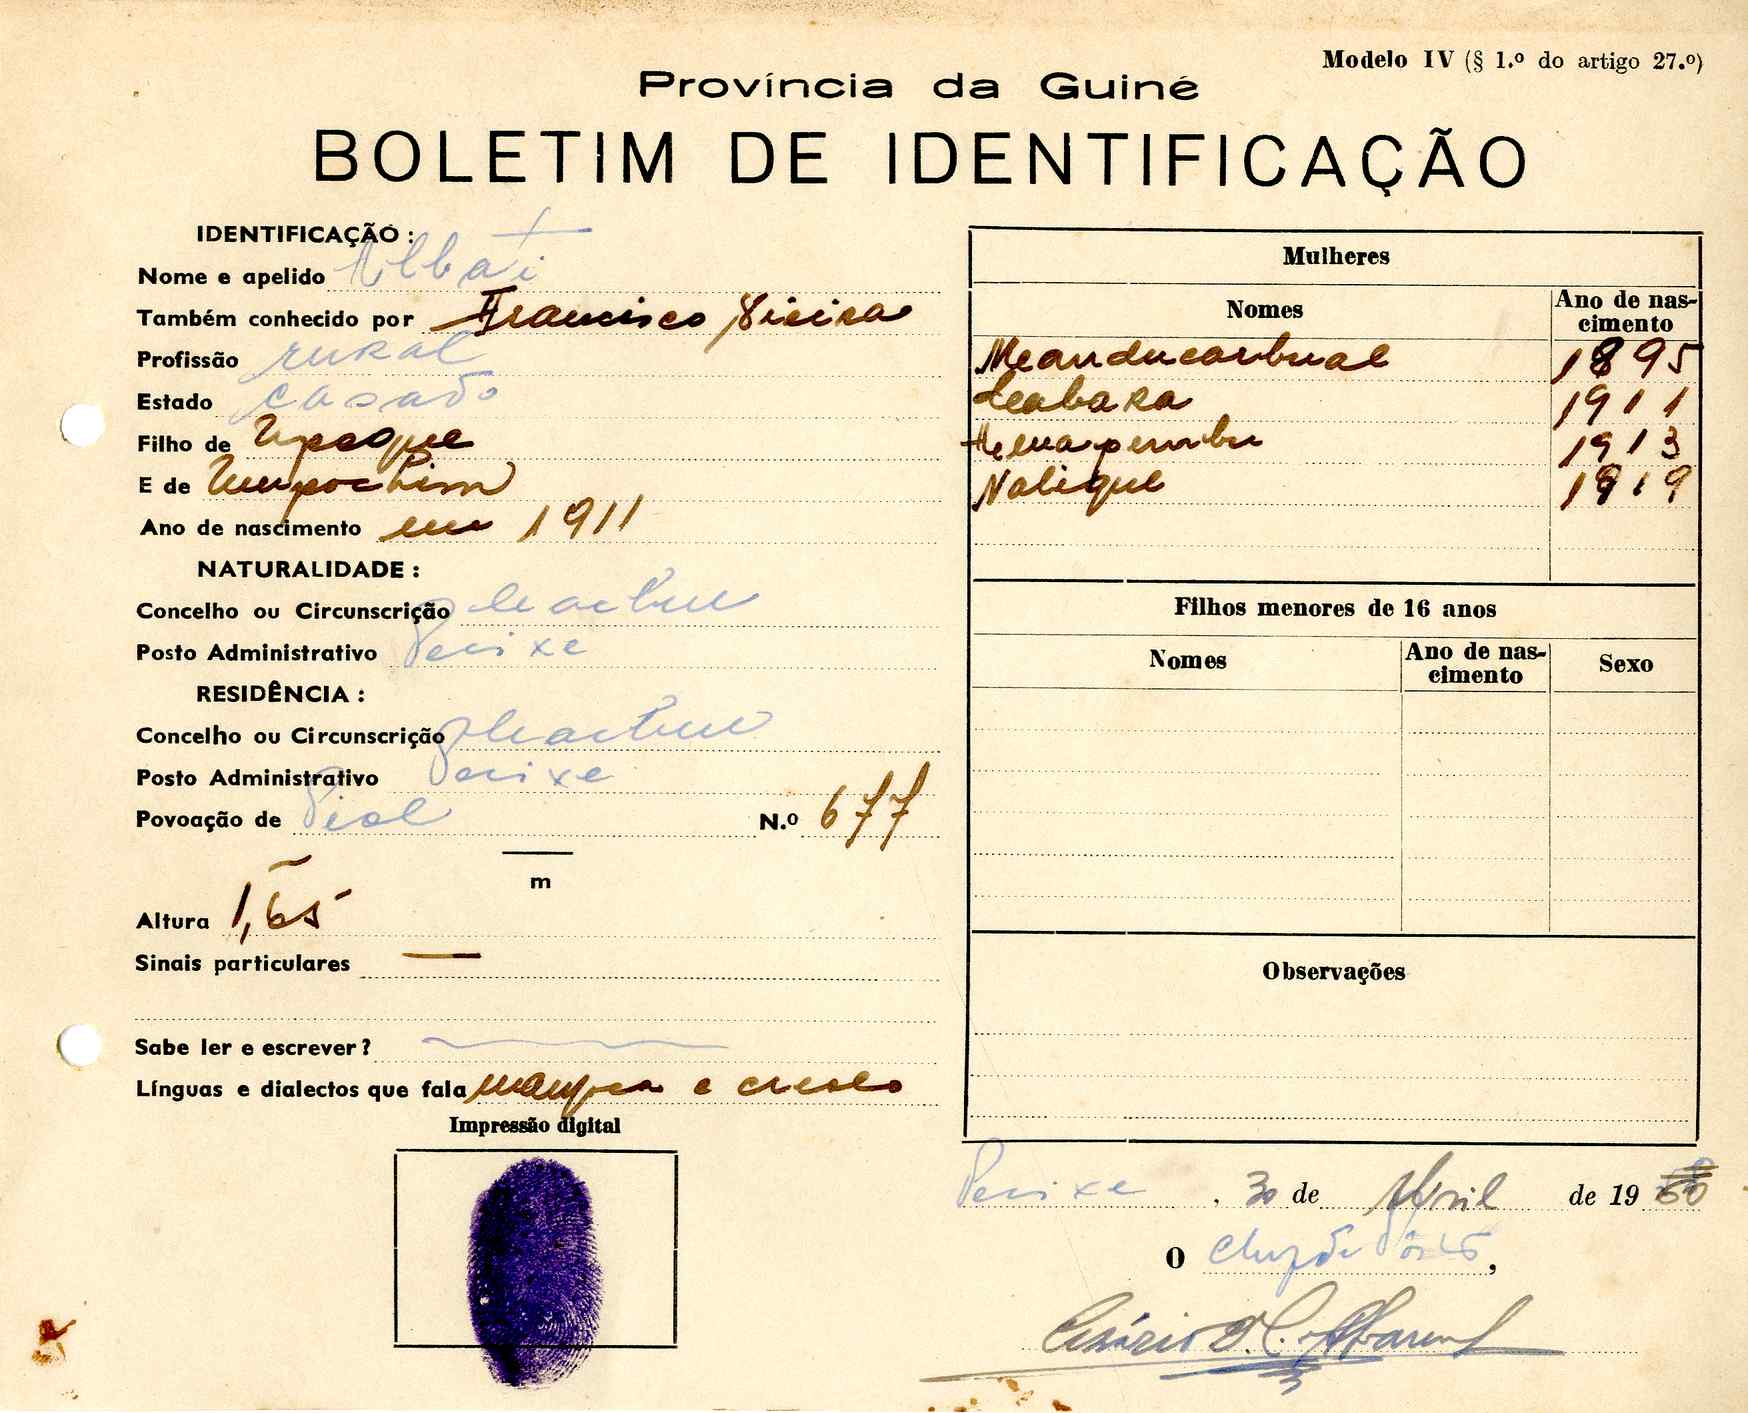 Modelo IV (§ 1.º do artigo 27.º)
Província da Guiné
BOLETIM DE IDENTIFICAÇÃO
IDENTIFICAÇÃO :
Nome e apelido
Também conhecido por Francisco Vieira
Profissão rural
Estado casado
Filho de Upaque
E de
Ano de nascimento em 1911
NATURALIDADE :
Concelho ou Circunscrição
Posto Administrativo Pecixe
RESIDÊNCIA :
Concelho ou Circunscrição
Posto Administrativo Pecixe
Povoação de N.º 677
m
Altura 1,65
Sinais particulares —
Sabe ler e escrever ?
Línguas e dialectos que fala e creolo
Impressão digital
Mulheres
Nomes Ano de nas-
cimento
1895
1911
1913
Nalique 1919
Filhos menores de 16 anos
Nomes Ano de nas-
cimento Sexo
Observações
Pecixe , 30 de Abril de 19
O Chefe de Posto,